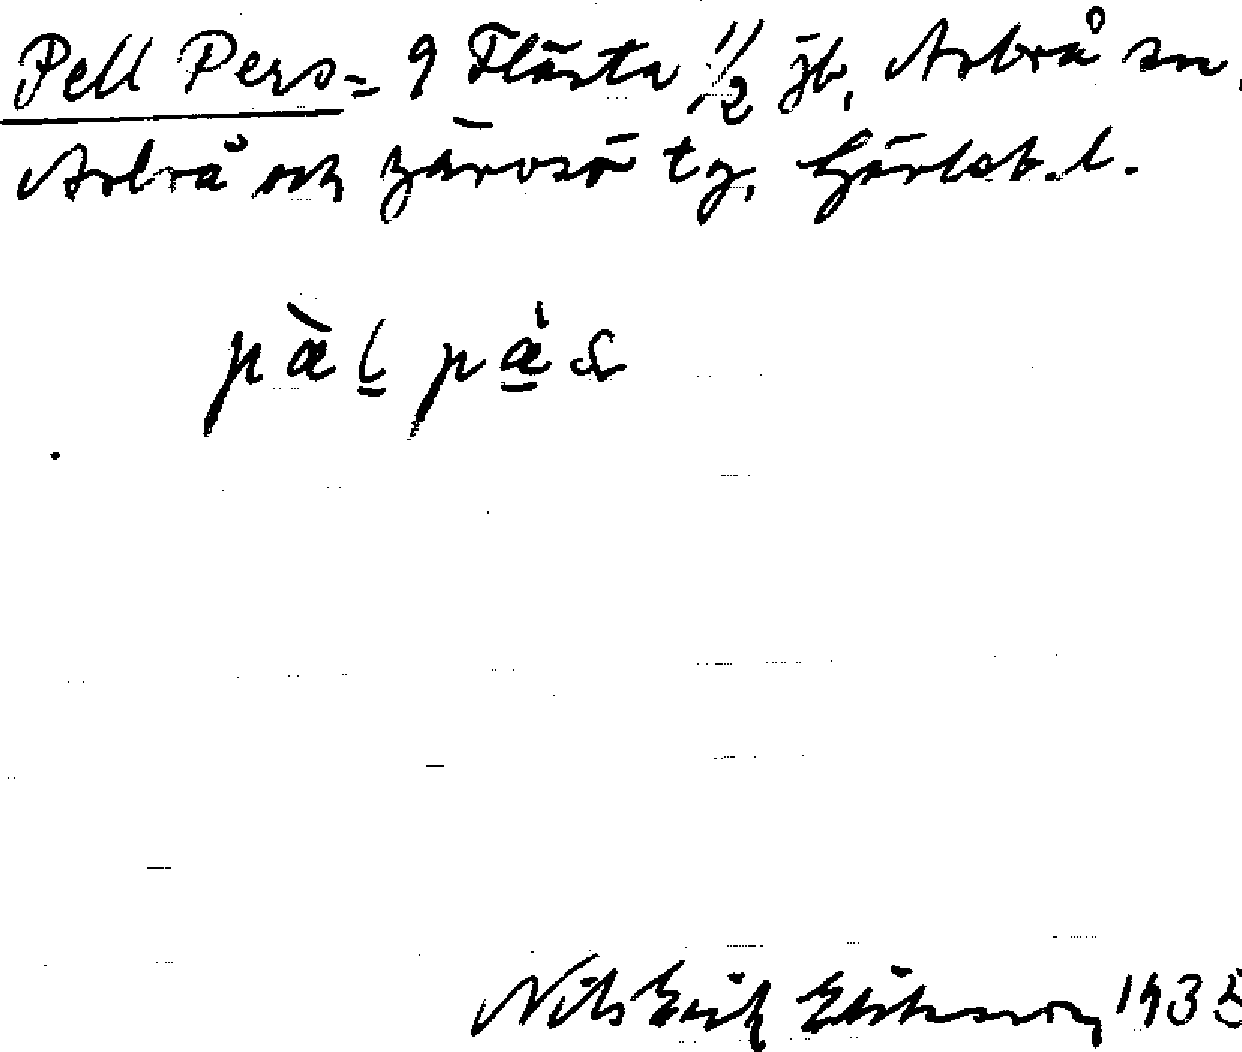 Pell Pers = g Flästa 1/2 jb, Arbrå sn,
Arbrå och Järvsö tg, Gävleb. l.
pæ̀l pæ̀s
Nils Erik Eriksson 1935